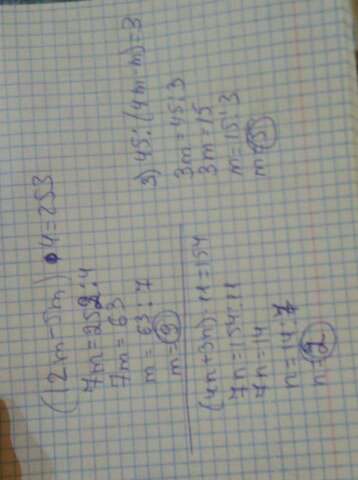 (12m-5m)·4=253
7m=252:4
7m=63
m=63:7
m=9
(4n+3n)·11=154
7n=154:11
7n=14
n=14:7
n=2
3) 45:(4m-m)=3
3m=45:3
3m=15
m=15:3
m=5